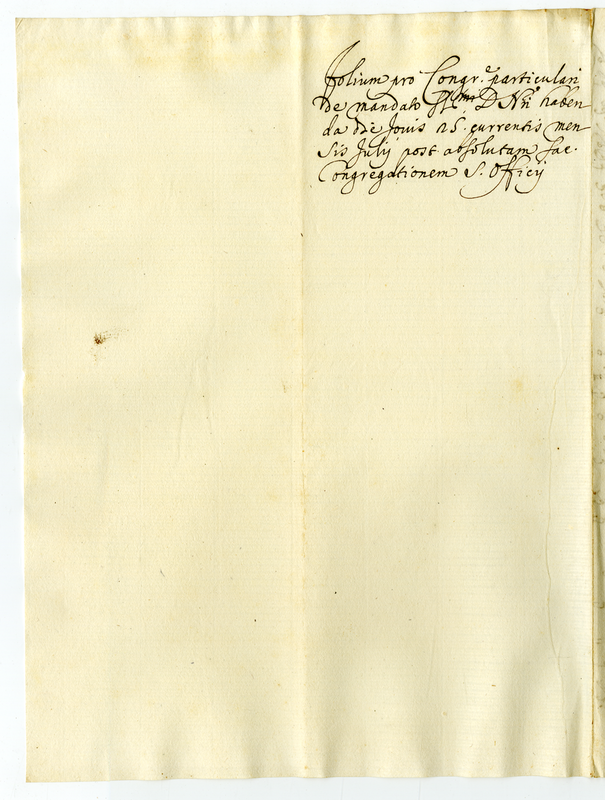 Folium pro Congr.e particulari
de mandato SSmi D Nri haben
da die Jovis 25. currentis men
sis Julij post absolutam sac.
Congregationem S. Officij